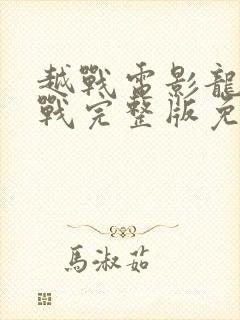 越戰電影龍
戰完整版免
馬淑茹